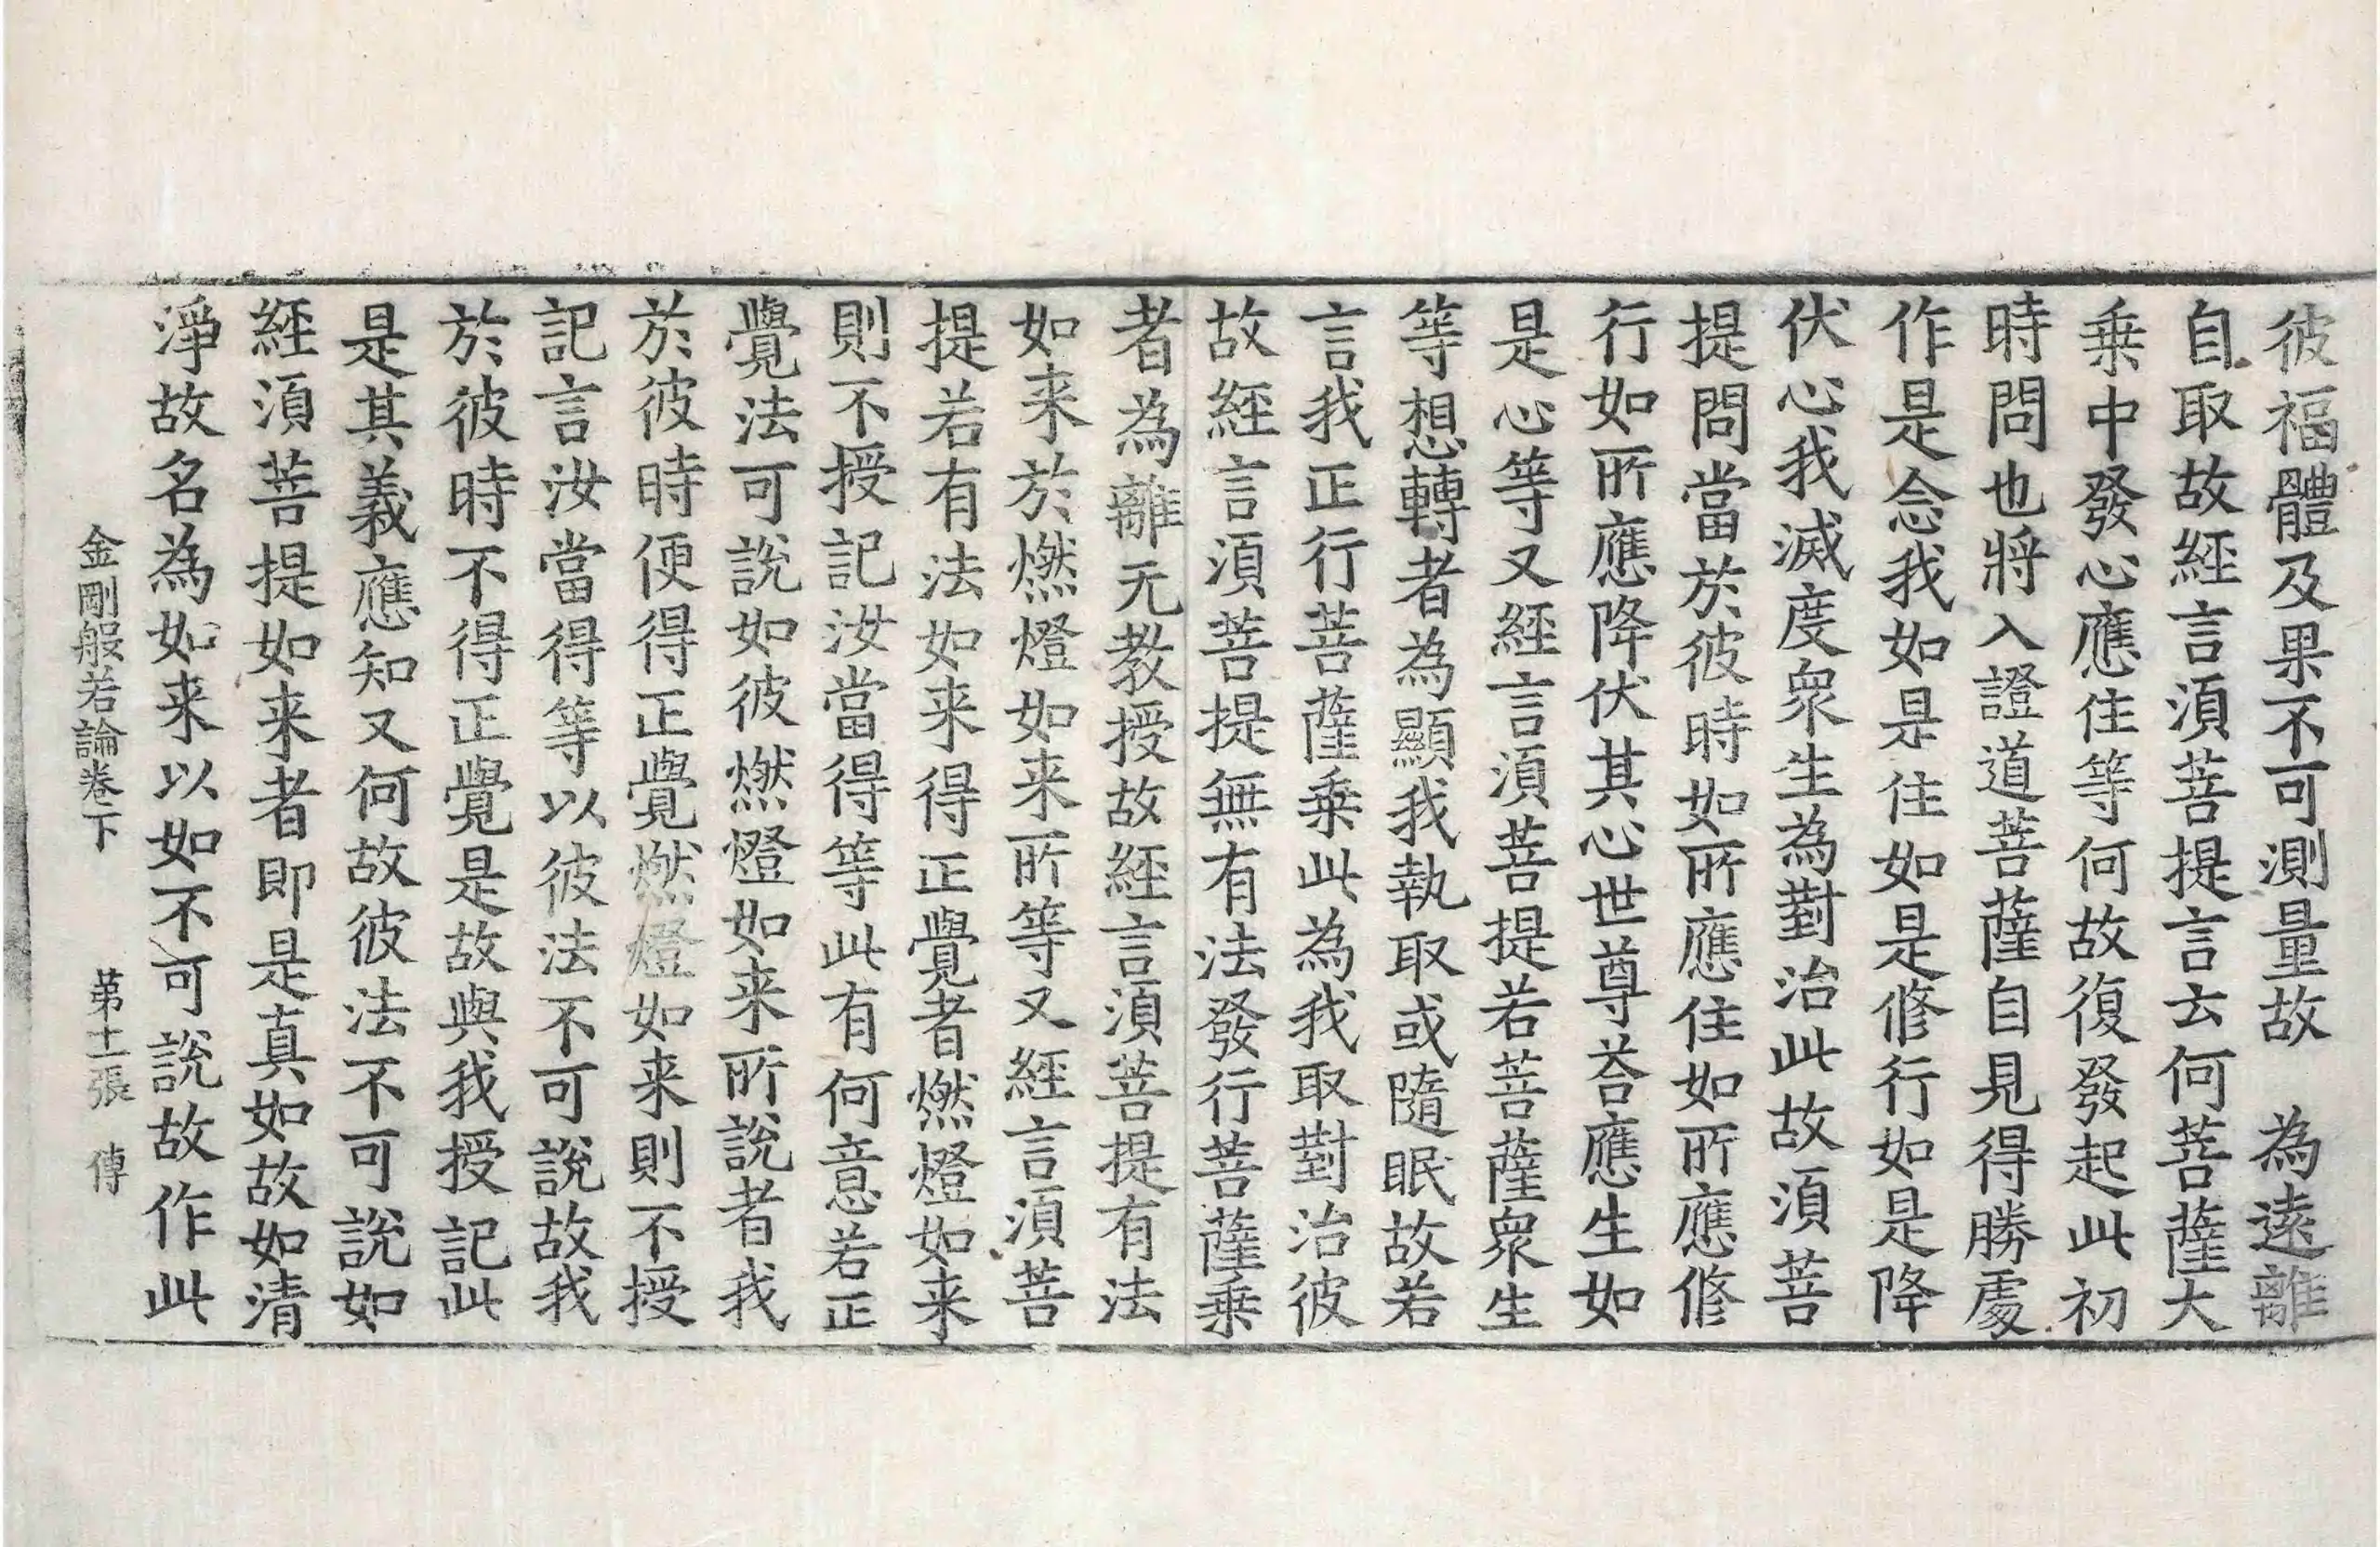 彼福體及果不可測量故　為遠離
自取故經言須菩提言云何菩薩大
乗中發心應住等何故復發起此初
時問也將入證道菩薩自見得勝處
作是念我如是住如是修行如是降
伏心我滅度衆生為對治此故須菩
提問當於彼時如所應住如所應修
行如所應降伏其心世尊荅應生如
是心等又經言須菩提若菩薩衆生
等想轉者為顯我執取或隨眠故若
言我正行菩薩乗此為我取對治彼
故經言須菩提無有法發行菩薩乗
者為離无教授故經言須菩提有法
如来於燃燈如来所等又經言須菩
提若有法如来得正覺者燃燈如来
則不授記汝當得等此有何意若正
覺法可說如彼燃燈如来所說者我
於彼時便得正覺燃燈如来則不授
記言汝當得等以彼法不可說故我
於彼時不得正覺是故與我授記此
是其義應知又何故彼法不可說如
經須菩提如来者即是真如故如清
淨故名為如来以如不可說故作此
金剛般若論卷下　第十二張　傳